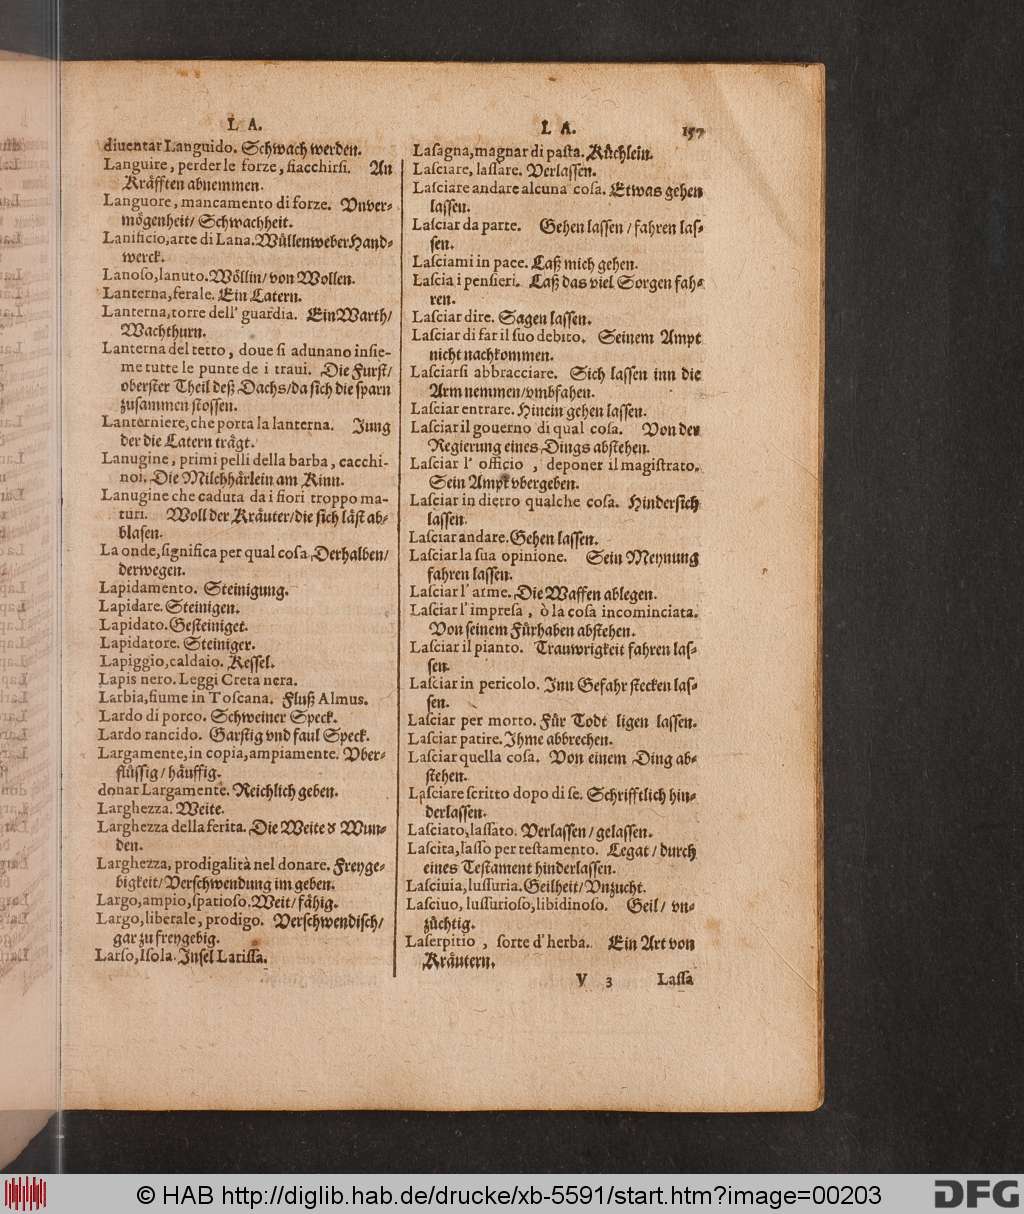 L A.
diuentar Languido. Schwach werden.
Languire, perder le forze, fiacchirſi. An
Kräfften abnemmen.
Languore, mancamento di forze. Vnver-
mögenheit/ Schwachheit.
Lanificio, arte di Lana. Wüllenweber Hand-
werck.
Lanoſo, lanuto. Wöllin/ von Wollen.
Lanterna, ferale. Ein Latern.
Lanterna, torre dell' guardia. Ein Warth/
Wachthurn.
Lanterna del tetto, doue ſi adunano inſie-
me tutte le punte de i traui. Die Furſt/
oberſter Theil deß Dachs/ da ſich die ſparn
zuſammen ſtoſſen.
Lanterniere, che porta la lanterna. Jung
der die Latern trägt.
Lanugine, primi pelli della barba, cacchi-
noi. Die Milchhärlein am Kinn.
Lanugine che caduta da i fiori troppo ma-
turi. Woll der Kräuter/ die ſich läſt ab-
blaſen.
La onde, ſignifica per qual coſa Derhalben/
derwegen.
Lapidamento. Steinigung.
Lapidare. Steinigen.
Lapidato. Geſteiniget.
Lapidatore. Steiniger.
Lapiggio, caldaio. Keſſel.
Lapis nero. Leggi Creta nera.
Larbia, fiume in Toſcana. Fluß Almus.
Lardo di porco. Schweiner Speck.
Lardo rancido. Garſtig vnd faul Speck.
Largamente, in copia, ampiamente. Vber-
flüſſig/ häuffig.
donar Largamente. Reichlich geben.
Larghezza. Weite.
Larghezza della ferita. Die Weite d' Wun-
den.
Larghezza, prodigalità nel donare. Freyge-
bigkeit/ Verſchwendung im geben.
Largo, ampio, ſpatioſo. Weit/ fähig.
Largo, liberale, prodigo. Verſchwendiſch/
gar zu freygebig.
Larſo, Iſola. Inſel Lariſſa.
L A. 157
Laſagna, magnar di paſta. Küchlein.
Laſciare, laſſare. Verlaſſen.
Laſciare andare alcuna coſa. Etwas gehen
laſſen.
Laſciar da parte. Gehen laſſen/ fahren laſ-
ſen.
Laſciami in pace. Laß mich gehen.
Laſcia i penſieri. Laß das viel Sorgen fah-
ren.
Laſciar dire. Sagen laſſen.
Laſciar di far il ſuo debito. Seinem Ampt
nicht nachkommen.
Laſciarſi abbracciare. Sich laſſen inn die
Arm nemmen/ vmbfahen.
Laſciar entrare. Hinein gehen laſſen.
Laſciar il gouerno di qual coſa. Von der
Regierung eines Dings abſtehen.
Laſciar l' officio, deponer il magiſtrato.
Sein Ampt vbergeben.
Laſciar in dietro qualche coſa. Hinderſich
laſſen.
Laſciar andare. Gehen laſſen.
Laſciar la ſua opinione. Sein Meynung
fahren laſſen.
Laſciar l' arme. Die Waffen ablegen.
Laſciar l' impreſa, ò la coſa incominciata.
Von ſeinem Fürhaben abſtehen.
Laſciar il pianto. Trauwrigkeit fahren laſ-
ſen.
Laſciar in pericolo. Inn Gefahr ſtecken laſ-
ſen.
Laſciar per morto. Für Todt ligen laſſen.
Laſciar patire. Ihme abbrechen.
Laſciar quella coſa. Von einem Ding ab-
ſtehen.
Laſciare ſcritto dopo di ſe. Schrifftlich hin-
derlaſſen.
Laſciato, laſſato. Verlaſſen/ gelaſſen.
Laſcita, laſſo per teſtamento. Legat/ durch
eines Teſtament hinderlaſſen.
Laſciuia, luſſuria. Geilheit/ Vnzucht.
Laſciuo, luſſurioſo, libidinoſo. Geil/ vn-
züchtig.
Laſerpitio, ſorte d' herba. Ein Art von
Kräutern.
V 3 Laſſa
© HAB http://diglib.hab.de/drucke/xb-5591/start.htm?image=00203
DFG